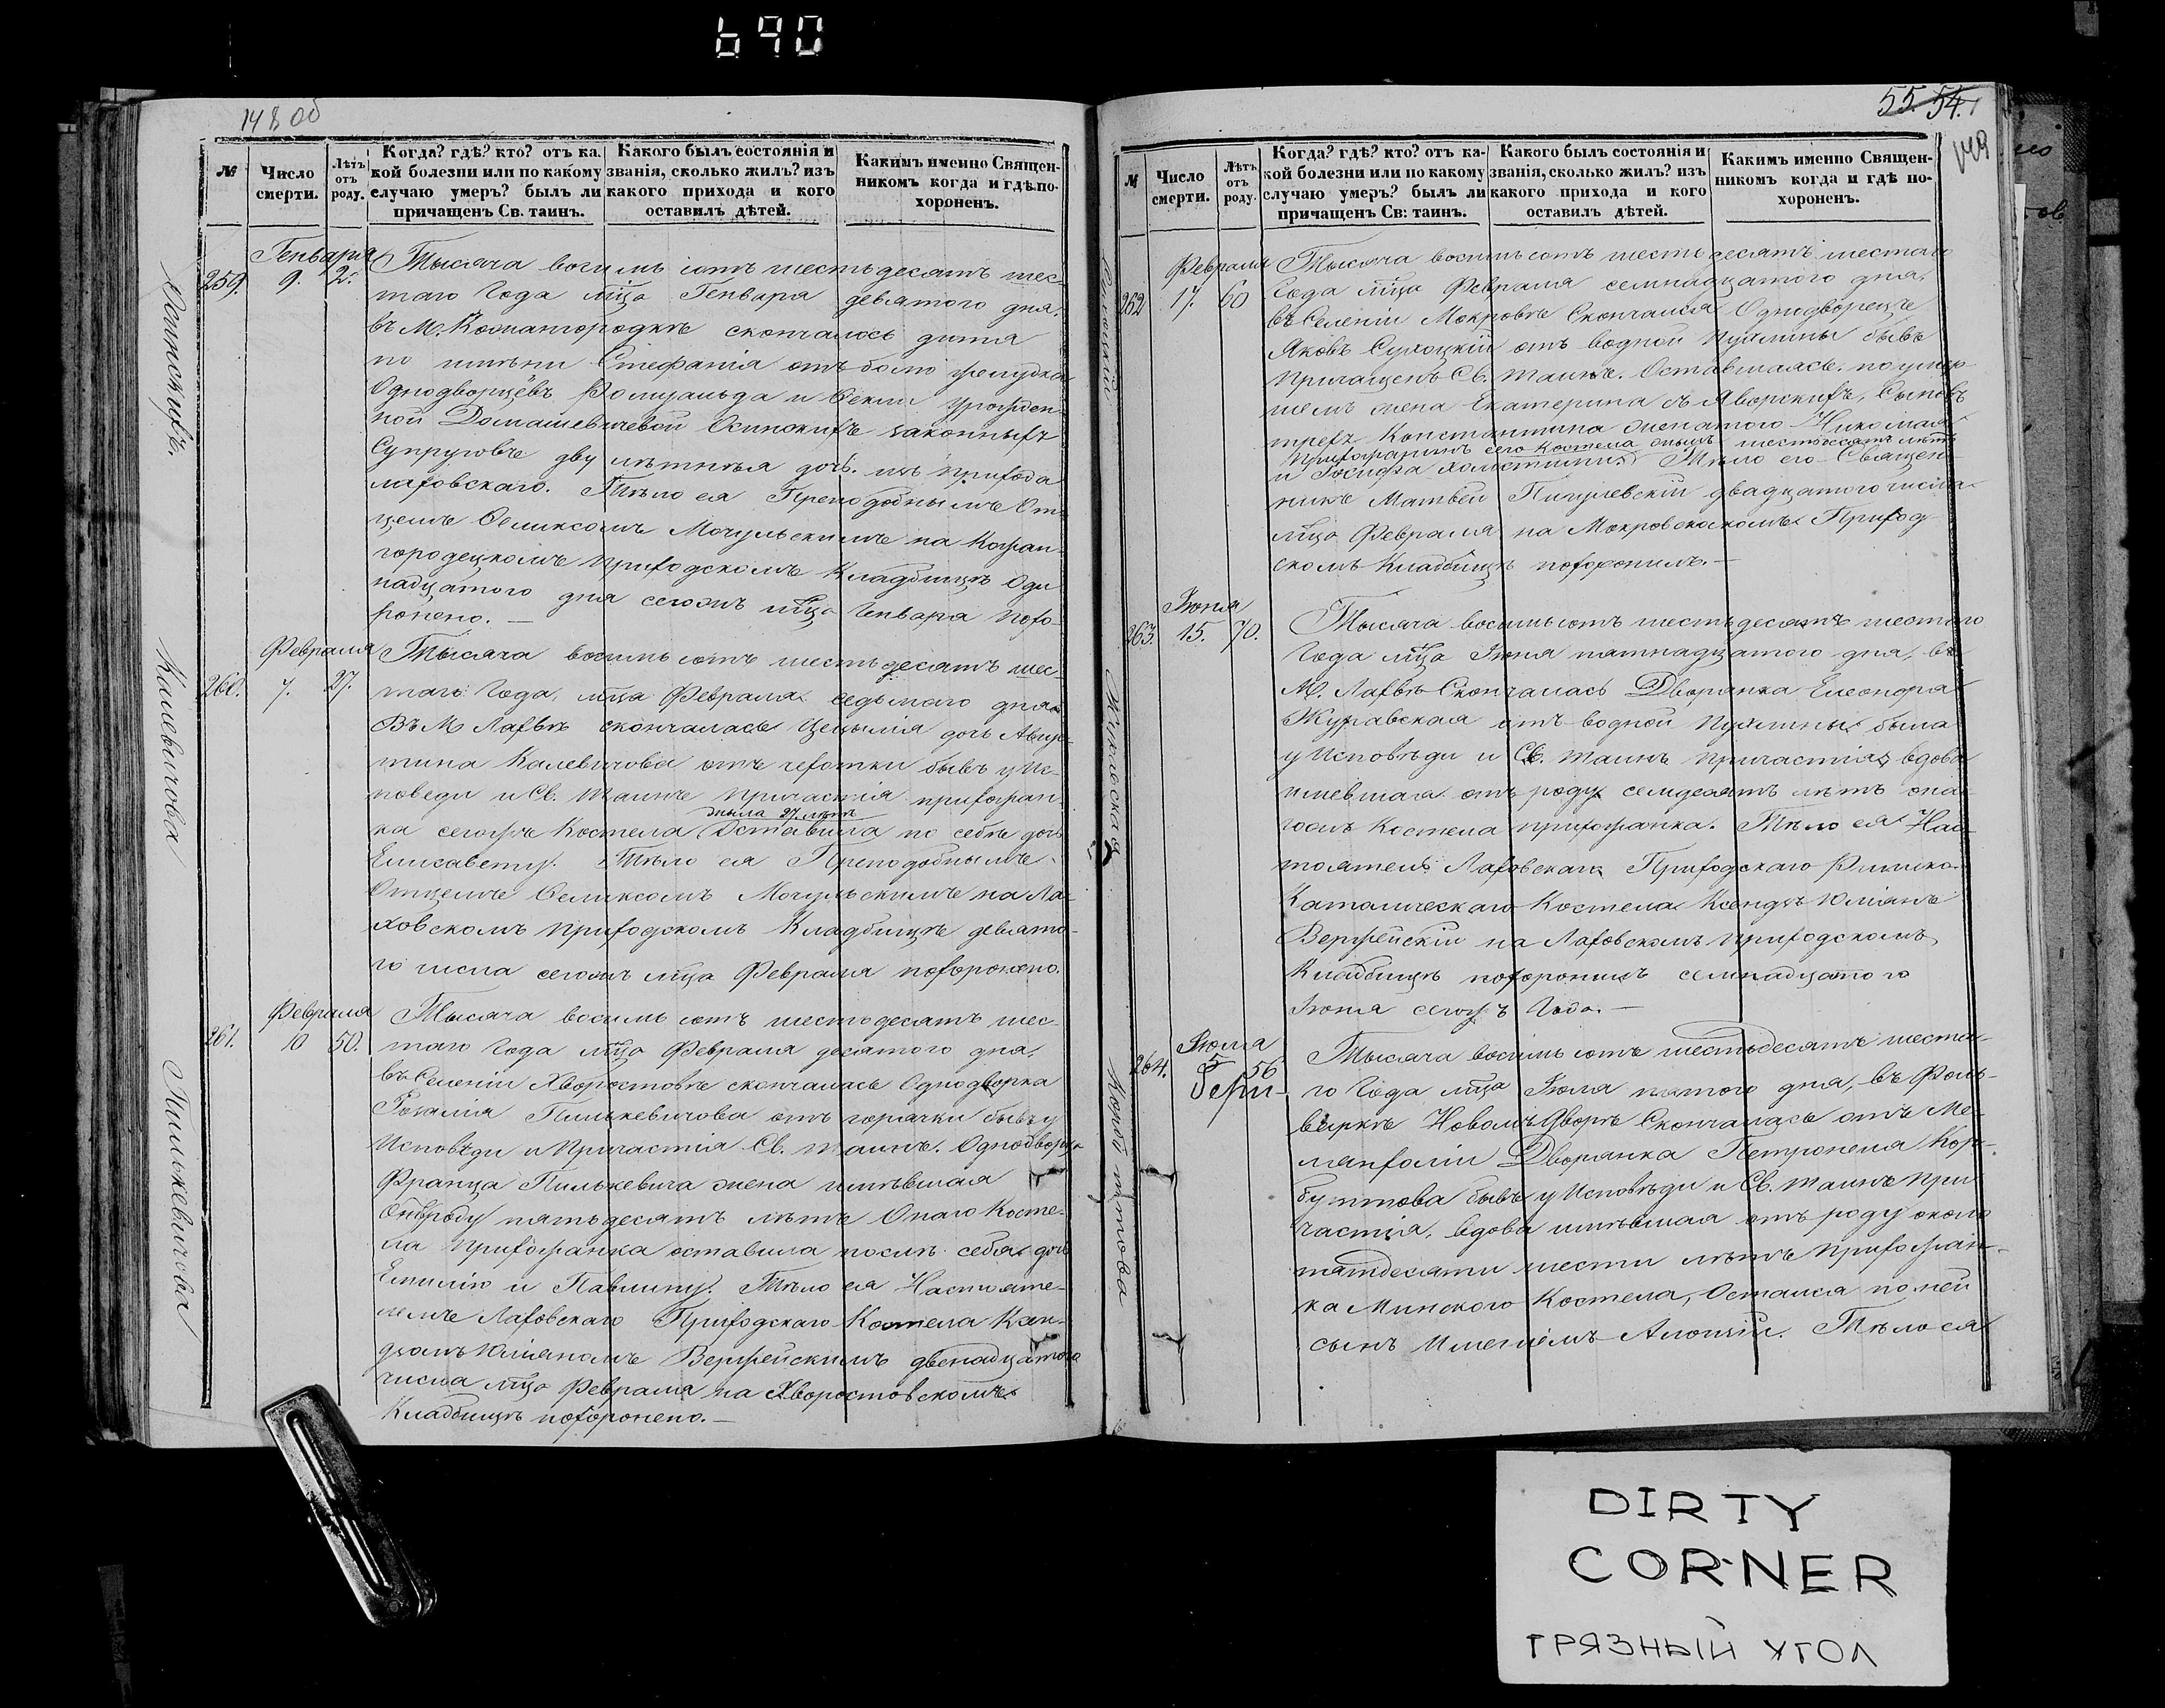 690
148 об
№
Число смерти.
Лѣтъ отъ роду.
Когда? гдѣ? кто? отъ ка-
кой болезни или по какому
случаю умеръ? былъ ли
причащенъ Св. таинъ.
Какого былъ состоянія и
званія, сколько жилъ? изъ
какого прихода и кого
оставилъ дѣтей.
Какимъ именно Священ-
никомъ когда и гдѣ по-
хороненъ.
Осинскихъ.
259.
Генваря
9. 2.
Тысяча восимь сотъ шестьдесятъ шес-
таго Года мца Генваря девятого дня.
въ М. Кожангородкѣ скончалось дитя
по имѣни Стефанія отъ боли желудка
Однодворцёвъ Ромуальда и Феклы урожден-
ной Домашевичевой Осинскихъ законныхъ
Супруговъ двулѣтняя дочь изъ прихода
лаховскаго. Тѣло ея Преподобнымъ От-
цемъ Феликсомъ Мочульскимъ на Кожан-
городецкомъ приходскомъ Кладбищѣ Оди
надцатого дня сегожъ мца Генваря похо-
ронено. —
Калевичова
260.
Февраля
7. 27.
Тысяча восимь сотъ шестьдесятъ шес-
таго Года, мца Февраля седьмого дня
Въ М Лахвѣ скончалась Цецылія дочь Авгус-
тина Калевичова отъ чехотки бывъ у Ис-
поведи и Св. Таинъ причастія прихожан-
ка сегожъ Костела
жила 27 лѣтъ
Оставила по себѣ дочь
Елисавету. Тѣло ея Преподобнымъ
Отцемъ Феликсомъ Мочульскимъ на Ла-
ховскомъ приходскомъ Кладбищѣ девято-
го числа сегожъ мца Февраля похоронено.
Пилькевичова
261.
Февраля
10 50.
Тысяча восимь сотъ шестьдесятъ шес-
таго Года мца Февраля десятого дня,
въ Селеніи Хворостовѣ скончалась Однодворка
Розалія Пилькевичова отъ горячки бывъ у
Исповѣди и Причастія Св. Таинъ. Однодворца
Франца Пилькевича жена имѣвшая
отъ роду пятьдесятъ лѣтъ Онаго Косте-
ла прихожанка оставила послѣ себя дочь
Емилію и Павлину. Тѣло ея Настояте-
лемъ Лаховскаго Приходскаго Костела Ксен-
дзомъ Юліаномъ Вержейскимъ двенадцатого
числа мца Февраля на Хворостовскомъ
Кладбищѣ похоронено. —
55. 54.
149
№
Число смерти.
Лѣтъ отъ роду.
Когда? гдѣ? кто? отъ ка-
кой болезни или по какому
случаю умеръ? былъ ли
причащенъ Св: таинъ.
Какого былъ состоянія и
званія, сколько жилъ? изъ
какого прихода и кого
оставилъ дѣтей.
Какимъ именно Священ-
никомъ когда и гдѣ по-
хороненъ.
262
Февраля
17. 60
Тысяча восимь сотъ шестьдесятъ шестаго
Года мца Февраля семнадцатого дня,
въ Селеніи Мокровѣ Скончался Однодворецъ
Яковъ Сулоцкій отъ водной пухлины бывъ
Причащенъ Св. Таинъ. Оставшаясь по умер-
шемъ жена Екатерина съ Яворскихъ, Сыновъ
трехъ Константина женатого Николая
Прихожанинъ сего Костела жилъ шестьдесятъ лѣтъ
и Іосифа холостыми. Тѣло его Священ-
никъ Матвей Пигулевскій двадцатого числа
мца Февраля на Мокровскомъ Приход-
скомъ Кладбищѣ похоронилъ. —
Жуковская
263.
Іюня
15. 70.
Тысяча восимь сотъ шестьдесятъ шестого
Года мца Іюня пятнадцатого дня, въ
М. Лахвѣ Скончалась Дворянка Елеонора
Журавская отъ водной пухлины была
у Исповѣди и Св. Таинъ причастія, вдова
имѣвшая отъ роду семдесятъ лѣтъ она-
гожъ Костела прихожанка. Тѣло ея Нас-
тоятель Лаховскаго Приходскаго Римско-
Католическаго Костела Ксендзъ Юліанъ
Вержейскій на Лаховскомъ приходскомъ
Кладбищѣ похоронилъ семнадцатого
Іюня сегожъ Года. —
Корбутова
264.
Іюля
5 56
Тысяча восимь сотъ шестьдесятъ шеста-
го Года мца Іюля пятого дня, въ Фоль-
варкѣ Новомъ Дворѣ Скончалась отъ Ме-
лянхоліи Дворянка Петронеля Кор-
бутова бывъ у Исповѣди и Св. Таинъ При
частія, вдова имѣвшая отъ роду около
пятдесяти шести лѣтъ прихожан-
ка Минского Костела, Остался по ней
сынъ Именемъ Алоизій. Тѣло ея
DIRTY
CORNER
ГРЯЗНЫЙ УГОЛ